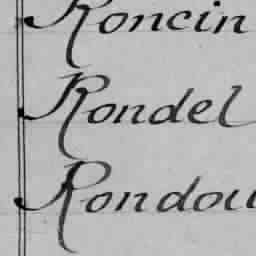 Roncin
Rondel
Rondou